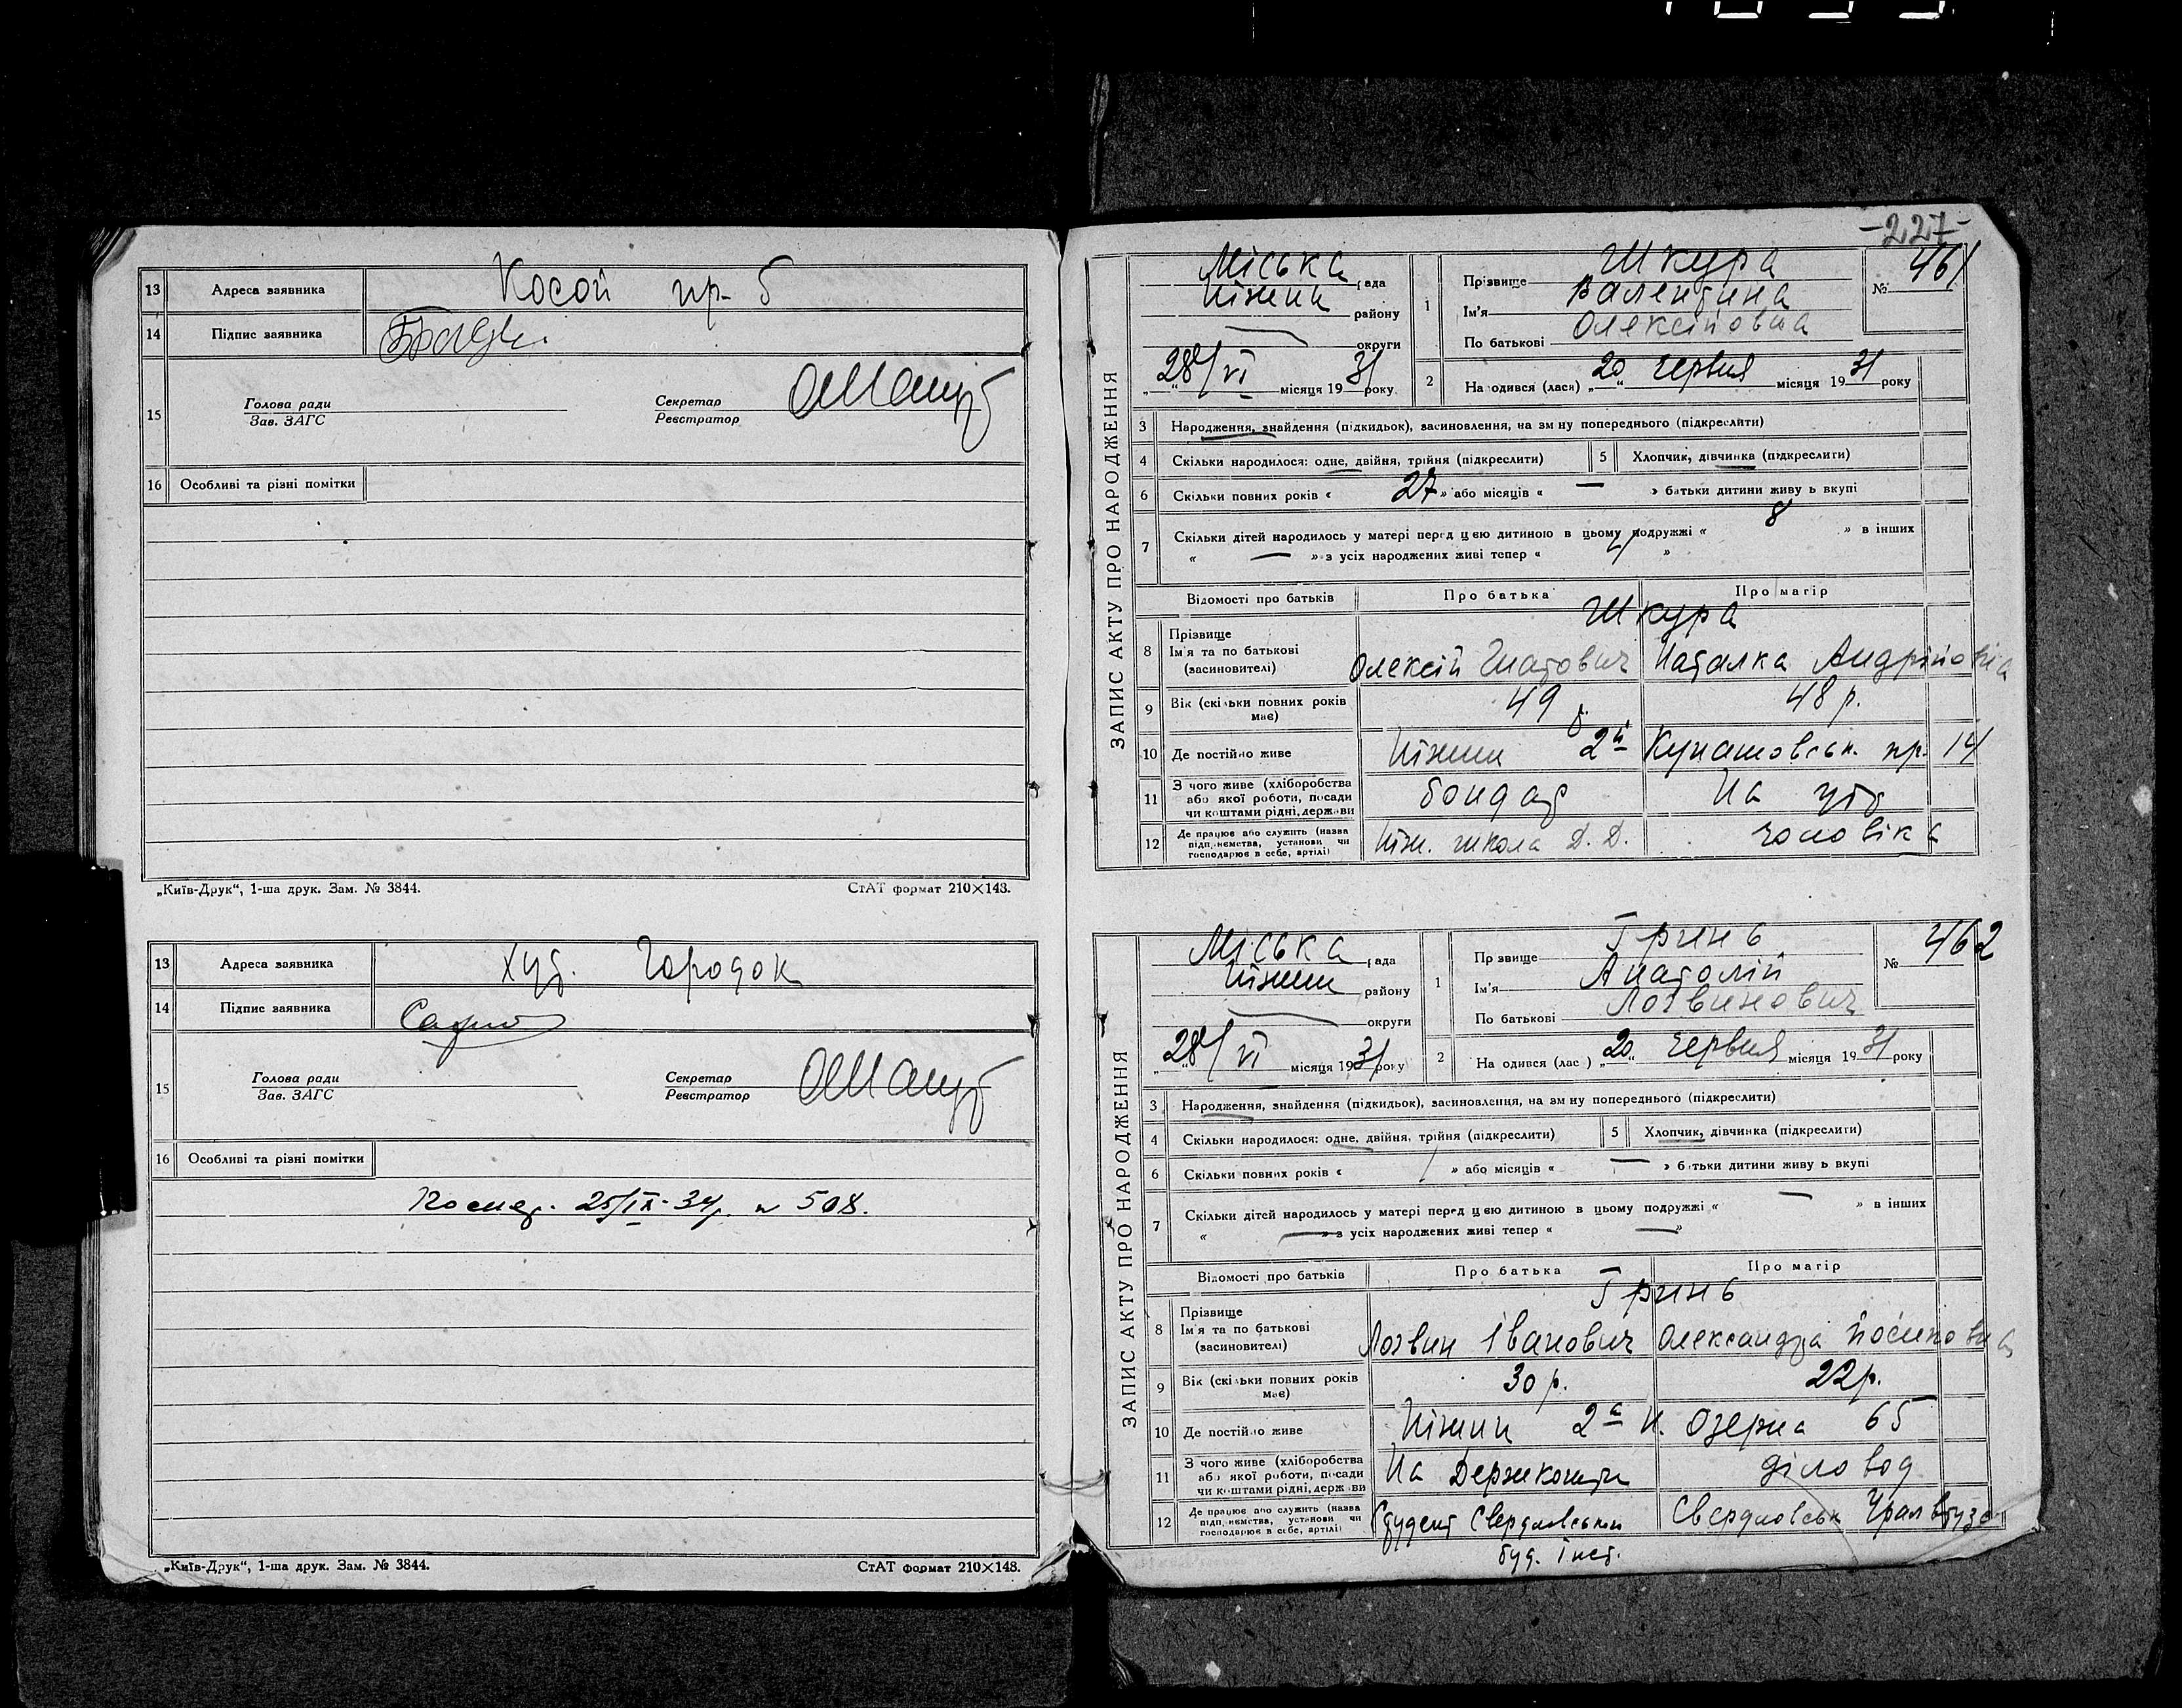 13 Адреса заявника Косой пр- 5
14 Підпис заявника
15 Голова ради Секретар
Зав. ЗАГС Реєстратор
16 Особливі та різні помітки
„Київ-Друк“, 1-ша друк. Зам. № 3844. СтАТ формат 210×148.
13 Адреса заявника Хут. Городок
14 Підпис заявника
15 Голова ради Секретар
Зав. ЗАГС Реєстратор
16 Особливі та різні помітки
25/IX-34р. № 508.
„Київ-Друк“, 1-ша друк. Зам. № 3844. СтАТ формат 210×148.
-227-
ЗАПИС АКТУ ПРО НАРОДЖЕННЯ
Міська рада
Ніжин району
округи
„28“/VI місяця 1931 року
1 Прізвище Шкура
Ім'я Валентина
По батькові Олексійовна
№ 461
2 Народився (лася) „20“ червня місяця 1931 року
3 Народження, знайдення (підкидьок), засиновлення, на зміну попереднього (підкреслити)
4 Скільки народилося: одне, двійня, трійня (підкреслити) 5 Хлопчик, дівчинка (підкреслити)
6 Скільки повних років « 27 » або місяців « — » батьки дитини живуть вкупі
7 Скільки дітей народилось у матері перед цією дитиною в цьому подружжі « 8 » в інших
« — » з усіх народжених живі тепер « 4 »
Відомості про батьків Про батька Про матір
Шкура
8 Прізвище
Ім'я та по батькові
(засиновителі)
Олексій Гнатович Наталка Андріївна
9 Вік (скільки повних років має) 49 р. 48 р.
10 Де постійно живе Ніжин 2й Кунашовськ. пр. 14
11 З чого живе (хліборобства
або якої роботи, посади
чи коштами рідні, держави
бондар На утр
12 Де працює або служить (назва
підприємства, установи чи
господарює в себе, артілі)
Ніж. школа Д. Д. чоловіка
ЗАПИС АКТУ ПРО НАРОДЖЕННЯ
Міська рада
Ніжин району
округи
„28“/VI місяця 1931 року
1 Прізвище Гринь
Ім'я Анатолій
По батькові Логвинович
№ 462
2 Народився (лася) „20“ червня місяця 1931 року
3 Народження, знайдення (підкидьок), засиновлення, на зміну попереднього (підкреслити)
4 Скільки народилося: одне, двійня, трійня (підкреслити) 5 Хлопчик, дівчинка (підкреслити)
6 Скільки повних років « / » або місяців « — » батьки дитини живуть вкупі
7 Скільки дітей народилось у матері перед цією дитиною в цьому подружжі « — » в інших
« — » з усіх народжених живі тепер « — »
Відомості про батьків Про батька Про матір
Гринь
8 Прізвище
Ім'я та по батькові
(засиновителі)
Логвин Іванович Олександра Йосиповна
9 Вік (скільки повних років має) 30 р. 22 р.
10 Де постійно живе Ніжин 2а Н. Озерна 65
11 З чого живе (хліборобства
або якої роботи, посади
чи коштами рідні, держави
На Держкошти діловод
12 Де працює або служить (назва
підприємства, установи чи
господарює в себе, артілі)
Студент Свердловський Свердловськ
буд. інст.